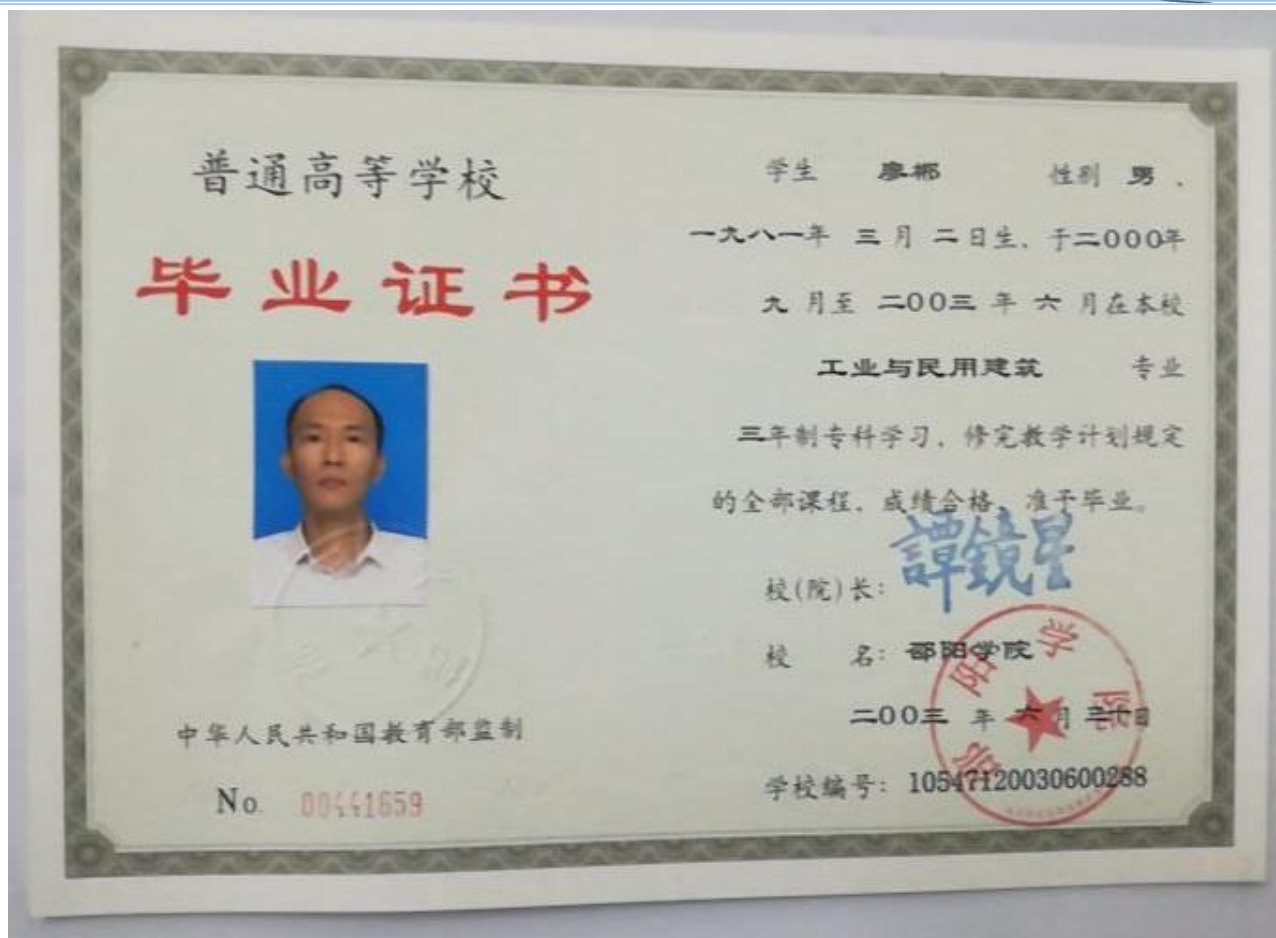 普通高等学校
毕业证书
中华人民共和国教育部监制
No. 00441659
学生 廖郴 性别 男 、
一九八一年 三月 二日生、于二000年
九 月至 二00三 年 六 月在本校
工业与民用建筑 专业
三年制专科学习、修完教学计划规定
的全部课程、成绩合格、准予毕业。
校(院)长: 譚鏡星
校 名: 邵阳学院
二00三 年 六月 三十日
学校编号: 10547120030600288
邵阳学院